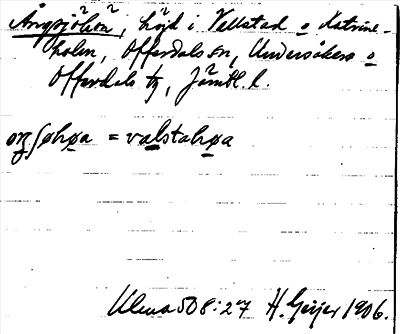 Ångsjöhöa, höjd i Vellstad o Katrine-
holm, Offerdals sn, Undersåkers o
Offerdals tg, Jämtl. l.
oŋʃøhøa = valstahøa
Ulma 508:27 H. Geijer 1906.